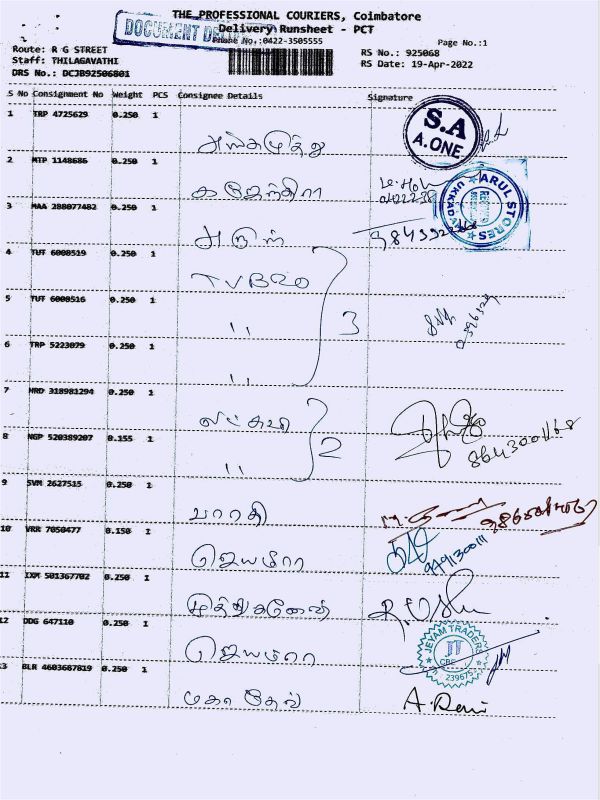 THE PROFESSIONAL COURIERS, Coimbatore
DOCUMENT
Delivery Runsheet - PCT
Phone No.:0422-3505555
Page No.:1
Route: R G STREET
RS No.: 925068
Staff: THILAGAVATHI
RS Date: 19-Apr-2022
DRS No.: DCJB92506801
S No Consignment No Weight PCS Consignee Details Signature
1 TRP 4725629 0.250 1
S.A
A.ONE
2 MTP 1148686 0.250 1
கஜேந்திரா
ARUL STORES
UKKADAM
3 MAA 288077482 0.250 1
அருண்
4 TUT 6008519 0.250 1
TVBRO
5 TUT 6008516 0.250 1
,,
3
6 TRP 5223079 0.250 1
,,
7 NRD 318981294 0.250 1
8 NGP 520389207 0.155 1
,,
2
9 SVM 2627515 0.250 1
பாரதி
10 VRR 7050477 0.150 1
ஜெயமாரா
11 IXM 501367702 0.250 1
12 DDG 647110 0.250 1
ஜெயமாரா
JEYAM TRADERS
JT
CBE
239675
13 BLR 4603687819 0.250 1
மகாதேவ்
A. Devi